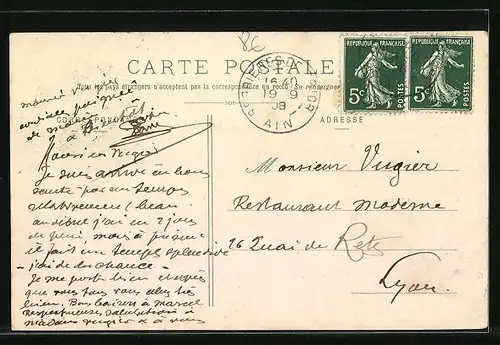 86
CARTE POSTALE
Tous les pays étrangers n'acceptent pas la correspondance au recto (Se renseigner
CORRESPONDANCE
ADRESSE
16 40
19 9
08
AIN
RÉPUBLIQUE FRANÇAISE
5c
POSTES
RÉPUBLIQUE FRANÇAISE
5c
POSTES
Monsieur Vugier
Restaurant Moderne
26 Quai de Retz
Lyon.
Je suis arrivé en bonne
santé par un temps
relativement beau
au début j'ai eu 2 jours
de pluie, mais à présent
il fait un temps splendide
j'ai de la chance
Je me porte bien j'espère
que vous tous vous allez très
bien. Bons baisers à Marcel
respectueuses salutations à
Madame Vugier & à vous